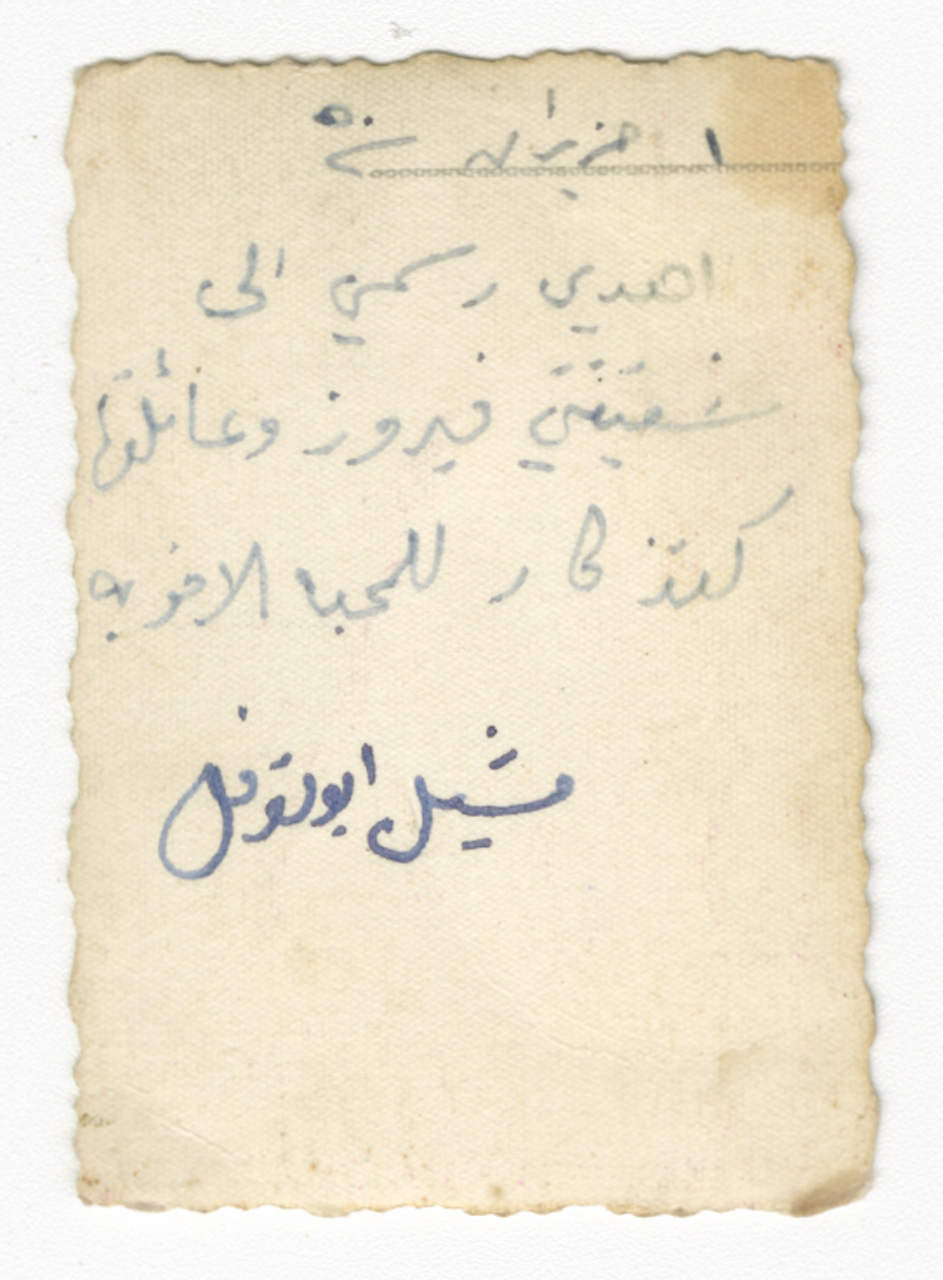 ١ حزيران ٥٠
اهدي رسمي الى
شقيقتي فيروز وعائلتها
كتذكار للمحبة الاخويه
مشيل ابونوفل